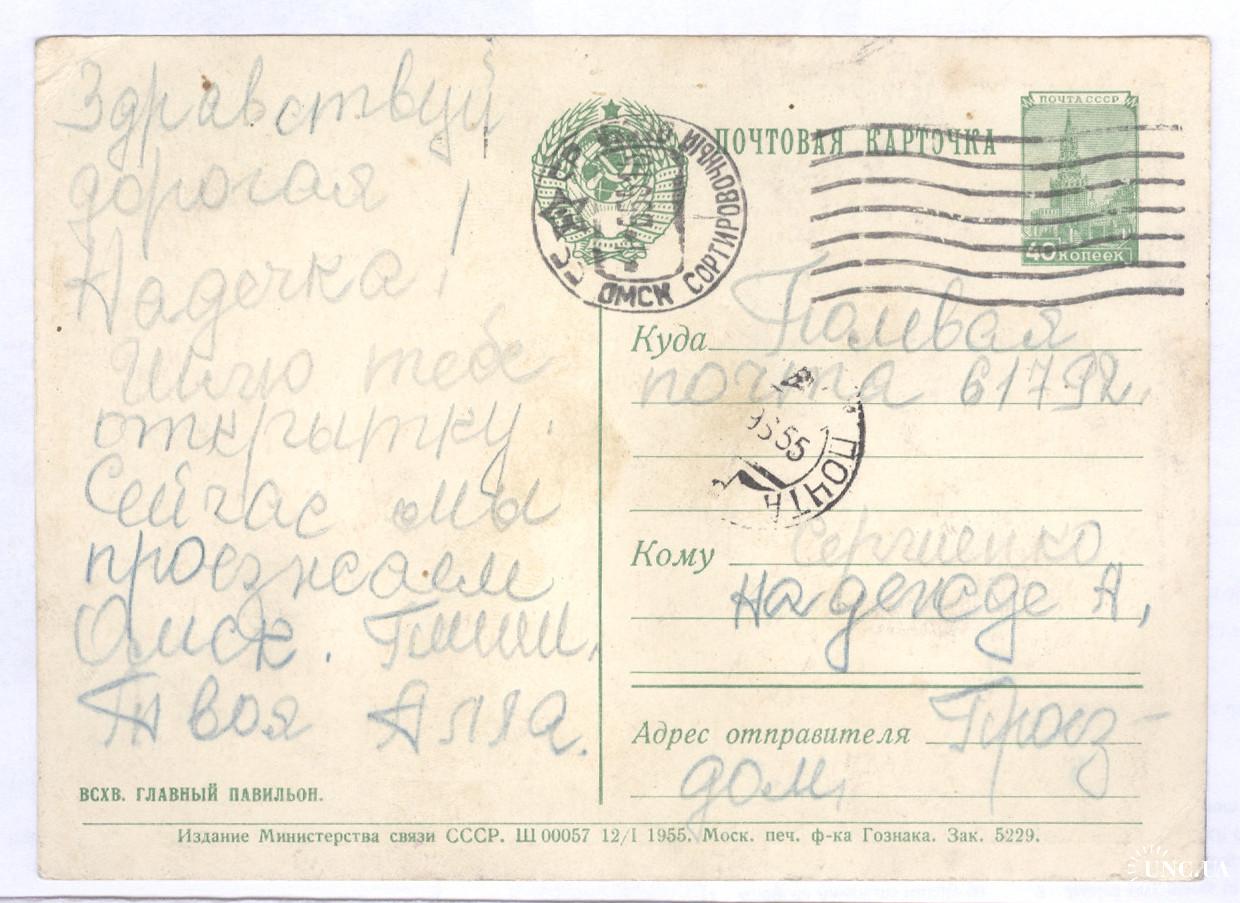 Здравствуй
дорогая
Надечка!
Шлю тебе
открытку.
Сейчас мы
проезжаем
Омск. Пиши,
Твоя Алла.
ВСХВ. ГЛАВНЫЙ ПАВИЛЬОН.
ПОЧТОВАЯ КАРТОЧКА
ПОЧТА СССР
40 КОПЕЕК
ОМСК СОРТИРОВОЧНЫЙ
Куда Полевая
почта 61792
55
ПОЧТА
Кому Сергиенко
Надежде А,
Адрес отправителя Проез-
дом,
Издание Министерства связи СССР. Ш 00057 12/I 1955. Моск. печ. ф-ка Гознака. Зак. 5229.
UNC.UA